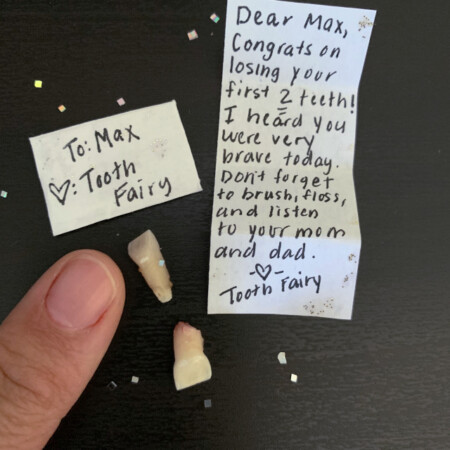 To: Max
♡: Tooth
Fairy
Dear Max,
Congrats on
losing your
first 2 teeth!
I heard you
were very
brave today.
Don't forget
to brush, floss,
and listen
to your mom
and dad.
-♡-
Tooth Fairy